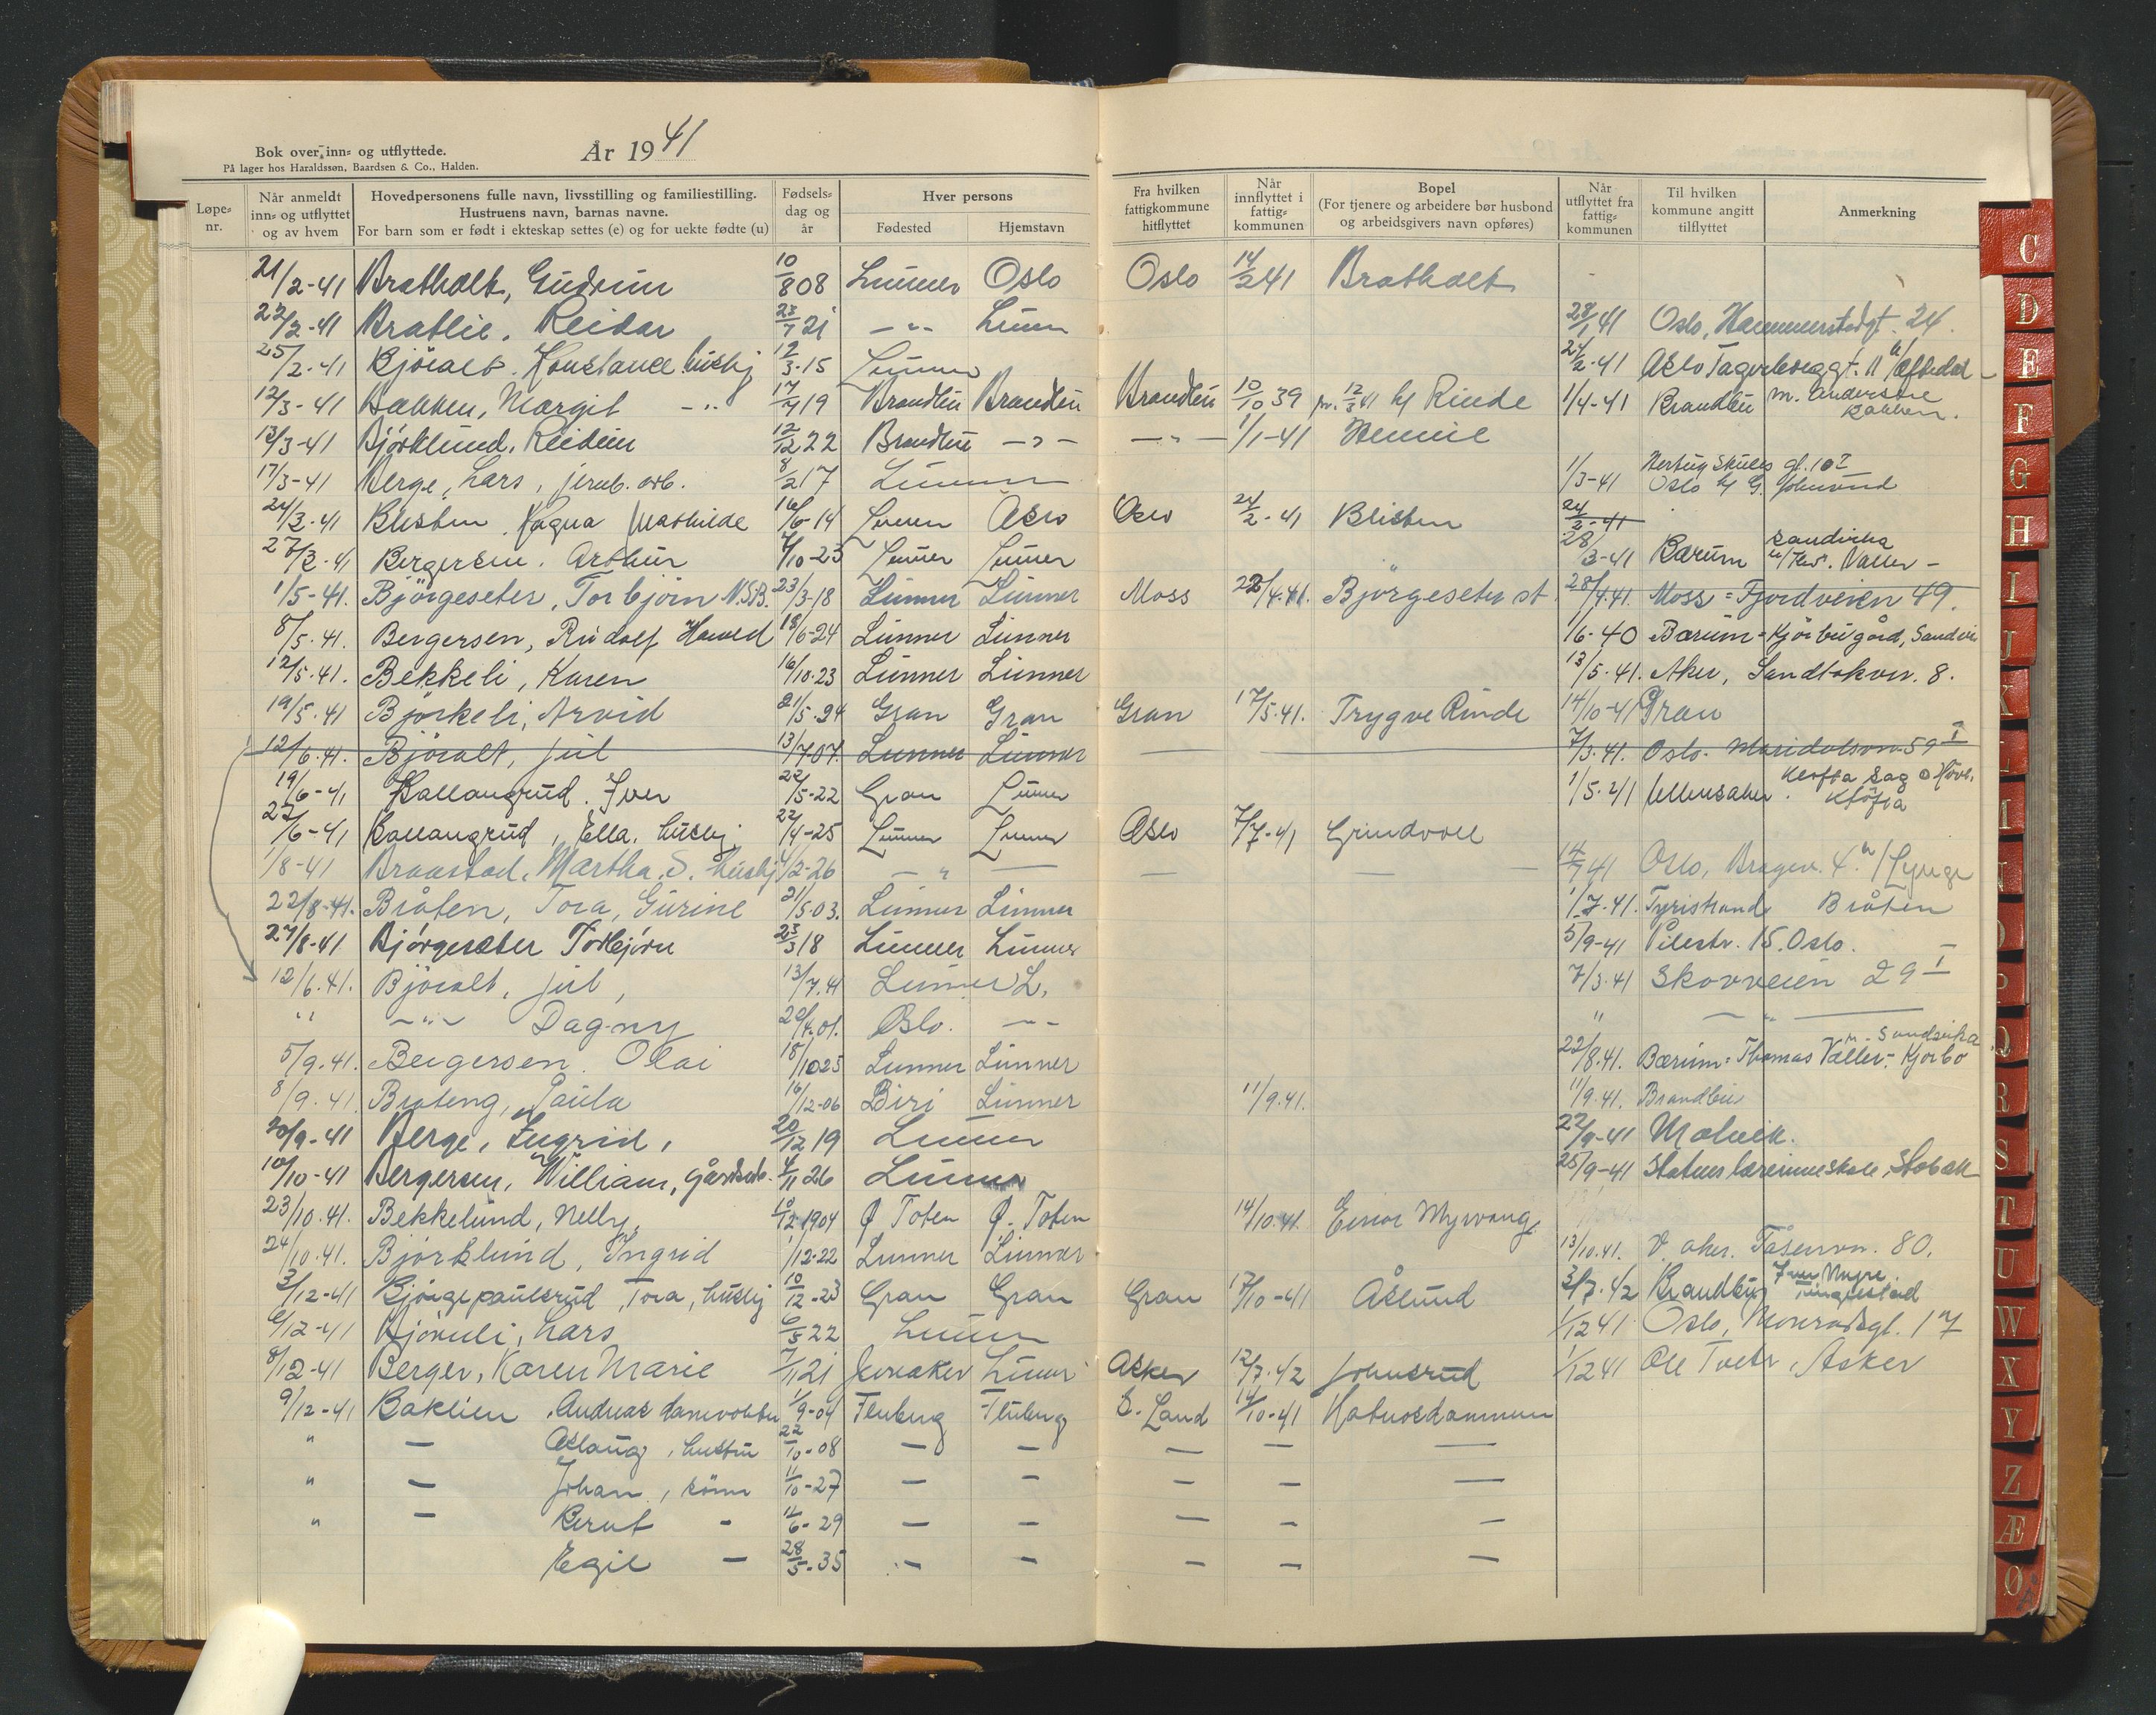 Bok over inn- og utflyttede.
På lager hos Haraldssøn, Baardsen & Co., Halden.
År 1941
Løpe-nr.
Når anmeldt inn- og utflyttet og av hvem
Hovedpersonens fulle navn, livsstilling og familiestilling. Hustruens navn, barnas navne. For barn som er født i ekteskap settes (e) og for uekte fødte (u)
Fødsels-dag og år
Hver persons
Fødested
Hjemstavn
Fra hvilken fattigkommune hitflyttet
Når innflyttet i fattig-kommunen
Bopel (For tjenere og arbeidere bør husbond og arbeidsgivers navn opføres)
Når utflyttet fra fattig-kommunen
Til hvilken kommune angitt tilflyttet
Anmerkning
21/2-41 Bratholt, Gudrun 10/8 08 Lunner Oslo Oslo 14/2 41 Bratholt
22/2-41 Bratlie, Reidar 23/7 21 -"- Lunn 28/1 41 Oslo, Hammerstadgt. 24.
25/2-41 Björalt. Konstance hushj 12/3-15 Lunner 24/2-41 Oslo
12/3-41 Bakken, Margit -"- 17/7 19 Brandbu Brandbu Brandbu 10/10 39 12/3 41 hj Rinde 1/4-41 Brandbu m. Anderstre Bakken.
13/3-41 Bjørklund, Reidun 12/12 22 Brandbu -"- -"- 1/1-41 Hennie
17/3-41 Berge, Lars, jernb. arb. 8/2 17 Lunner 1/3-41 Hertug Skules gt. 10 Oslo hj G. Johnsrud
24/3-41 Ragna Mathilde 16/6-14 Lunner Oslo Oslo 24/2-41 24/2-41
27/3-41 Bergersen. Arthur 7/10-23 Lunner Lunner 28/3-41 Bærum Sandvika Valler -
1/5-41. Björgeseter, Torbjörn N.S.B. 23/3-18 Lunner Lunner Moss 28/4.41. Björgeseter st 28/4.41. Moss = Fjordveien 49.
8/5.41. Bergersen, Rudolf Harald 18/6-24 Lunner Lunner 1/6-40 Bærum - Kjörbu gård, Sandvi
12/5.41. Bekkeli, Karen 16/10.23 Lunner Lunner 13/5.41. Aker, Sandtakvn. 8.
19/5.41 Björkeli, Arvid 21/5.24 Gran Gran Gran 17/5.41. Trygve Rinde 14/10-41 Gran
12/6.41. Björalt, Jul 13/7.07. Lunner Lunner 7/3.41. Oslo. Maridalsvn 59 I
19/6-41 Kallangrud. Iver 22/5-22 Gran Lunner 1/5.41 Ullensaker. Kløfta Sag o Høvl. Kløfta
27/6-41 Kallangrud, Ella, hushj. 22/4-25 Lunner Lunner Oslo 7/7-41 Grindvoll
1/8-41 Braastad, Martha. S. hushj 4/2-26 -"- — — — — 14/7 41 Oslo, Bragev. 4
22/8-41. Bråten, Tora, Gurine 21/5.03. Lunner Lunner 1/7.41. Tyristrand Bråten
27/8-41 Bjørgeseter Torbjørn 23/3 18 Lunner Lunner 5/9-41 Pilestr. 15. Oslo.
12/6.41. Björalt, Jul, 13/7.41 Lunner L. 7/3.41 Skovveien 29 I
" -"- Dagny 20/4.01. Oslo. -- " — " —
5/9.41. Bergersen. Olai 18/10 25 Lunner Lunner 22/8.41. Bærum = Thomas Valler - Kjørbo Sandvika
8/9.41. Bråteng, Paula 16/12-06 Biri Lunner 11/9.41. 11/9.41. Brandbu
20/9-41 Berge, Ingrid, 20/12 19 Lunner 22/9-41 Malvik.
10/10-41 Bergersen, William, gårdsarb. 4/11 26 Lunner 25/9-41 Statens lærerinneskole, Stabæk
23/10.41. Bekkelund, Nelly, 10/12 1904 Ø Toten Ø. Toten 14/10.41. Einar Myrvang
24/10.41. Björklund, Ingrid 1/12-22 Lunner Lunner 13/10.41. V. aker. Tåsenvn. 80.
3/12-41 Bjørgepaulsrud, Tora, hushj 10/12-23 Gran Gran Gran 17/10-41 Åslund 3/7.42 Brandbu Iver Myre. Tingelstad
6/12-41 Lars 6/5 22 Lunner 1/12 41 Oslo, Monradsgt. 17
8/12-41 Berger, Karen Marie 7/11 21 Jevnaker Lunner Asker 12/7.42 Johnsrud 1/12 41 Ole Tveter, Asker
9/12-41 Baklien, Andreas damvokter 1/9-04 Fluberg Fluberg S. Land 14/10-41
" — Aslaug, hustru 22/10-08 — — — — —
" — Johan, sönn 11/10-27 — — — — —
" — Bernt - 12/6-29 — — — — —
Egil — 28/5-35 -"- — — — —
C
D
E
F
G
H
I
J
K
L
M
N
O
P
Q
R
S
T
U
W
X
Y
Z
Æ
Ø
Å